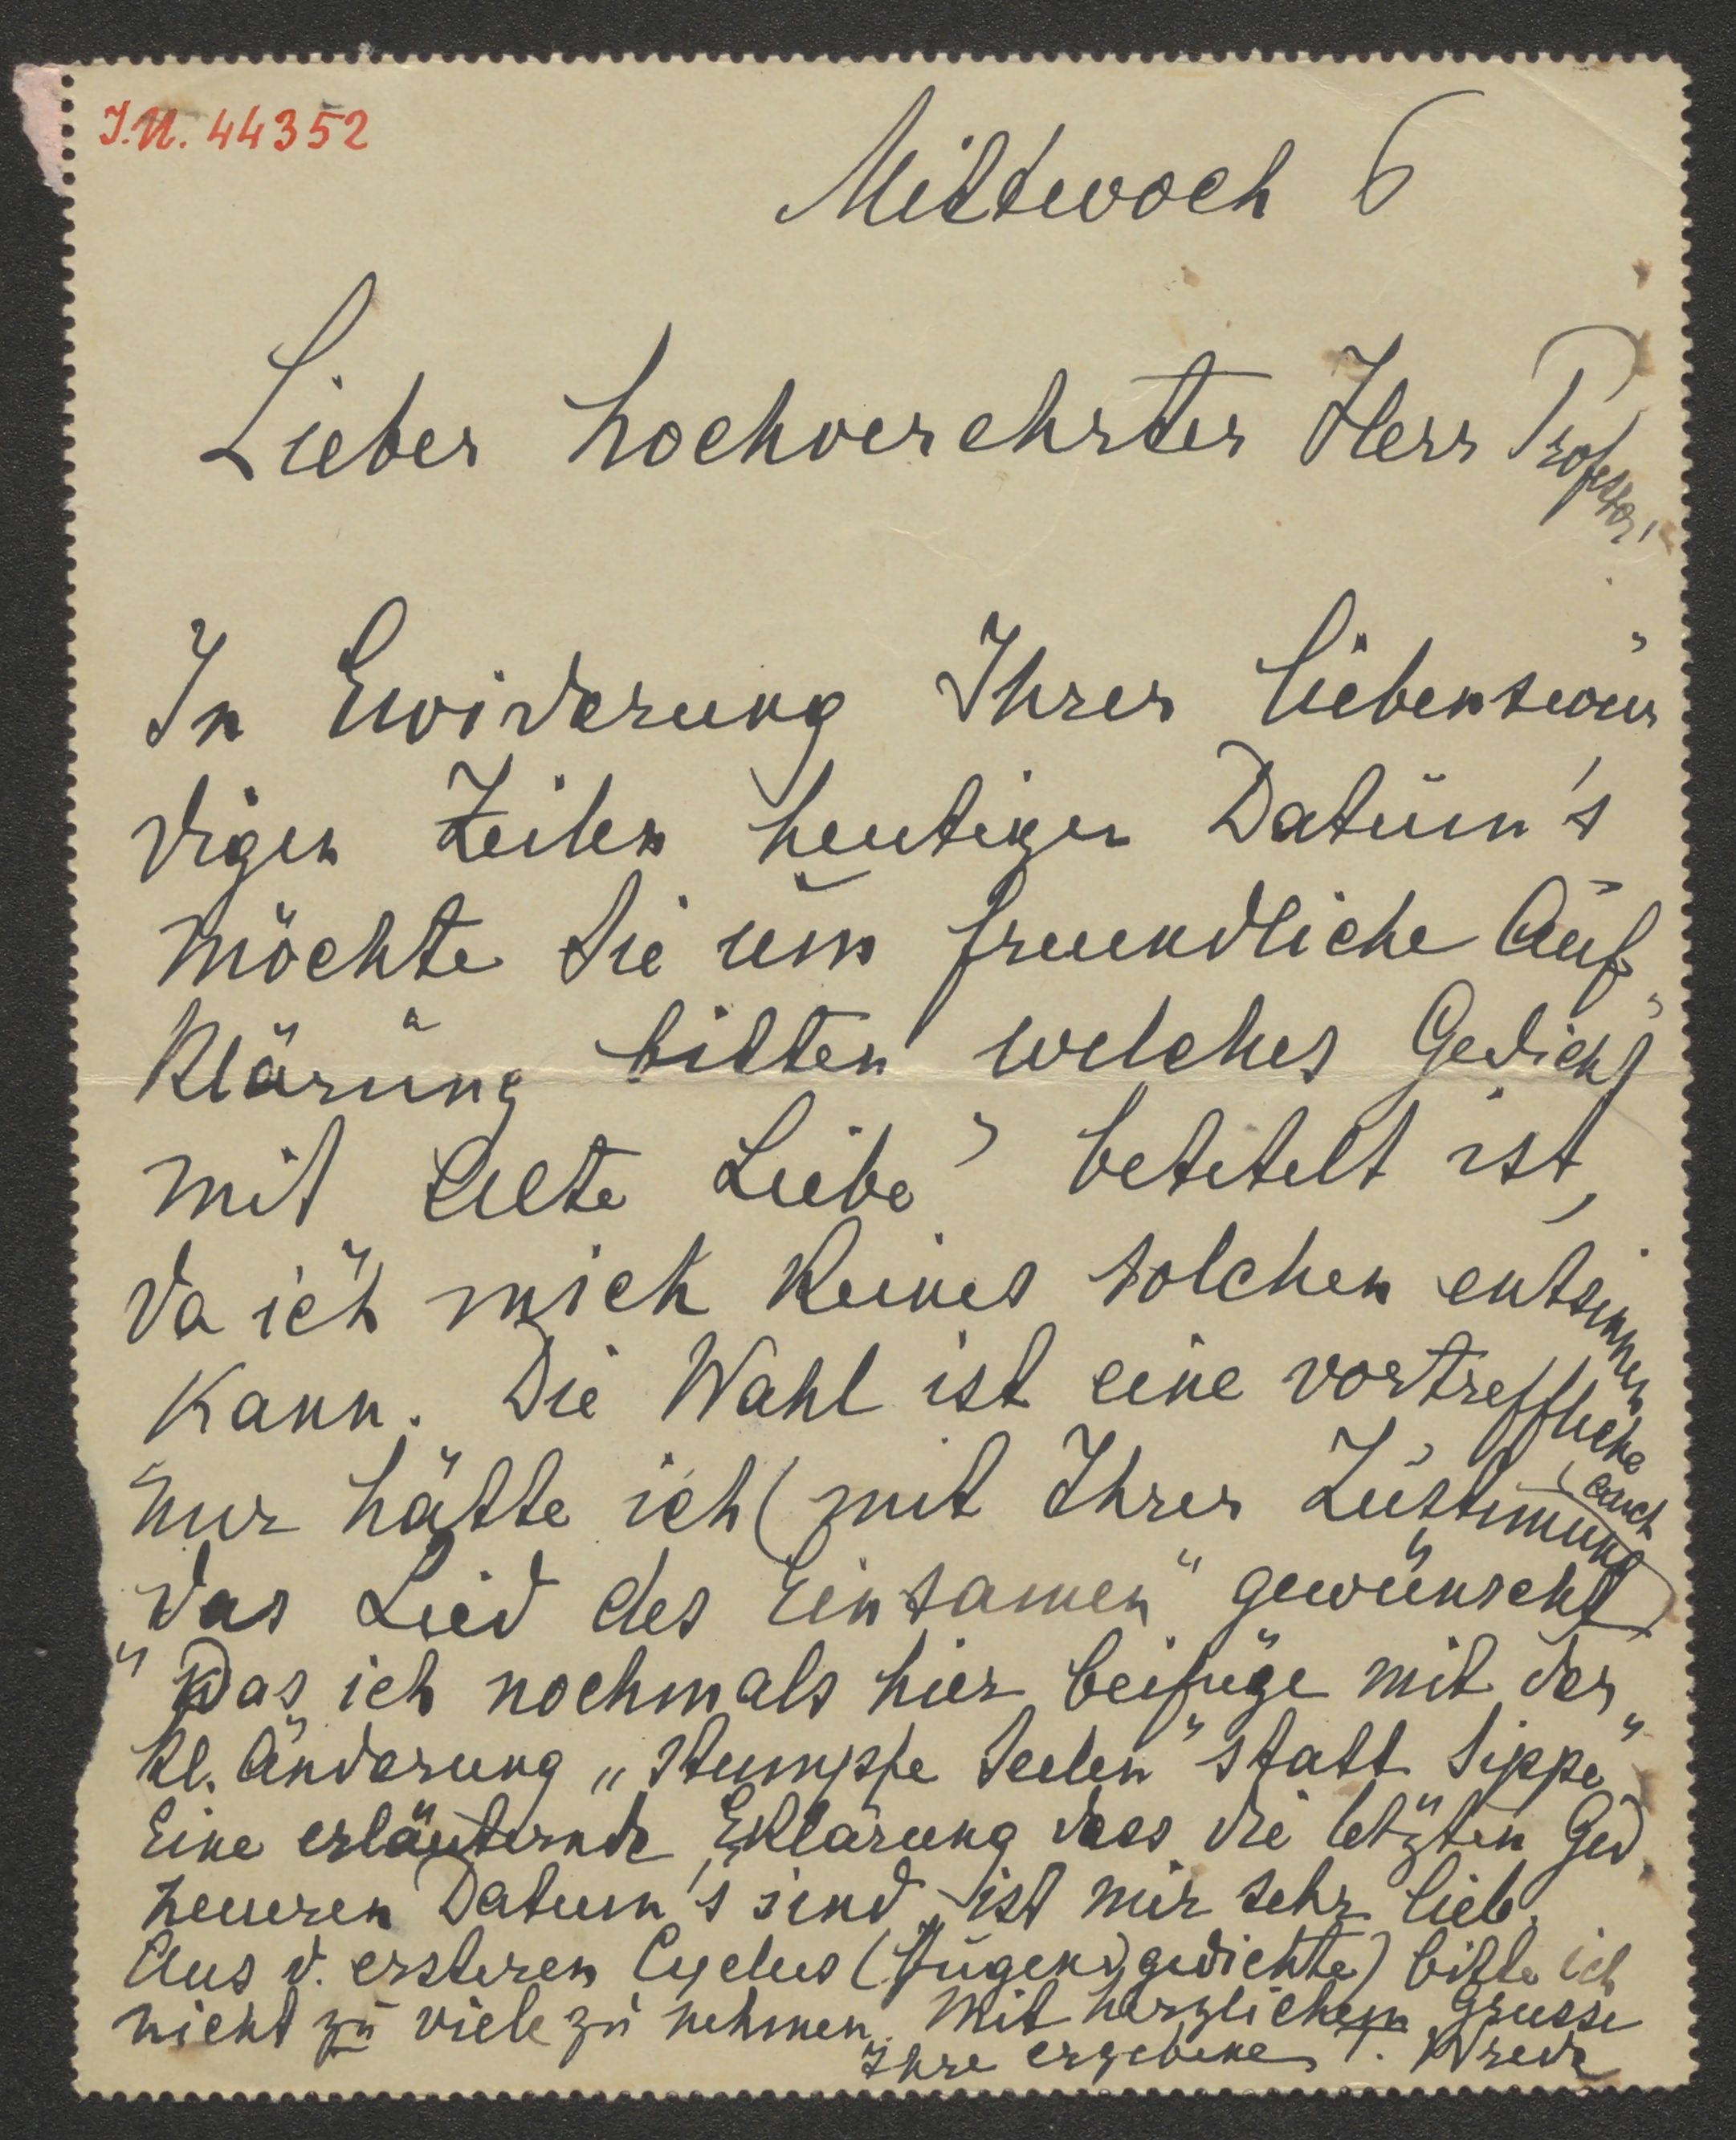 I.N. 44352
Mittwoch 6
Lieber hochverehrter Herr Professor,
In Erwiderung Ihrer liebenswür
digen Zeilen heutigen Datum's
möchte Sie um freundliche Auf
klärung bitten welches Gedicht
mit "Alte Liebe" betitelt ist,
da ich mich keines solchen entsinnen
kann. Die Wahl ist eine vortreffliche
nur hätte ich (mit Ihrer Zustimmung) auch
"das Lied des Einsamen" gewünscht
Das ich nochmals hier beifüge mit der
kl. Änderung „stumpfe Seelen" statt "Sippe"
Eine erläuternde Erklärung dass die letzten Ged.
neueren Datum's sind, ist mir sehr lieb.
Aus d. ersteren Cyclus (Jugendgedichte) bitte ich
nicht zu viele zu nehmen. Mit herzlichem Grusse
Ihre ergebene F. Wrede